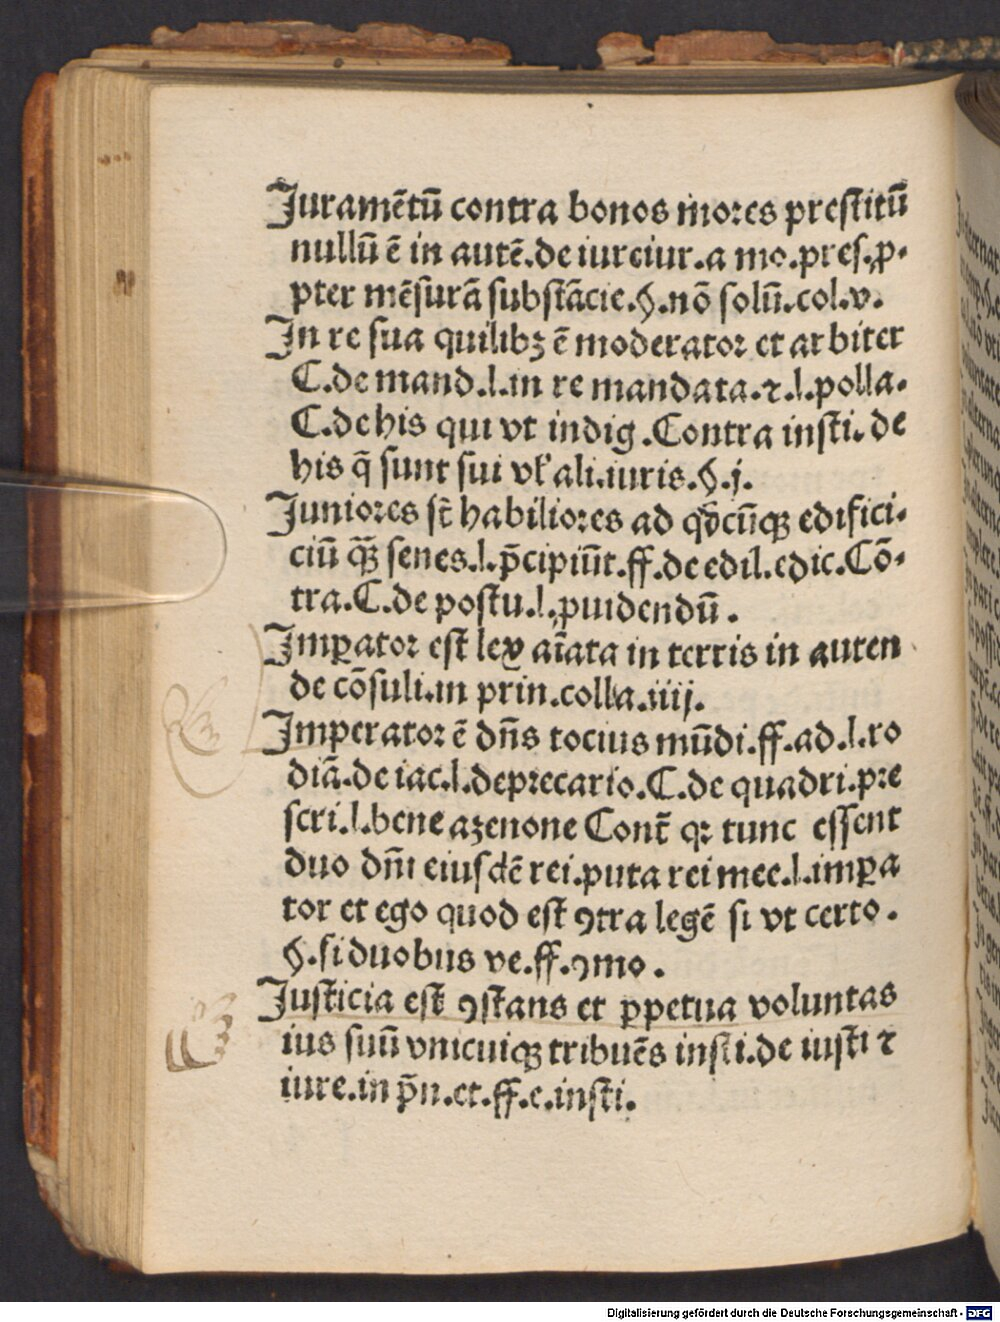 Juramētū contra bonos mores prestitū
nullū ē in autē.de iureiur.a mo.pres.ꝓ.
pter mēsurā substācie.§.nō solū.col.v.
In re sua quilibꝫ ē moderator et arbiter
C.de mand.l.in re mandata.⁊.l.polla.
C.de his qui vt indig.Contra insti.de
his q̄ sunt sui vꝉ ali.iuris.§.j.
Juniores sē habiliores ad edifici.
ciū senes.l.p̄cipiūt.ff.de edil.edic.Cō.
tra.C.de postu.l.ꝓuidendū.
Imꝑator est lex aīata in terris in auten
de cōsuli.in prin.colla.iiij.
Imperator ē dn̄s tocius mūdi.ff.ad.l.ro
diā.de iac.l.deprecario.C.de quadri.pre
scri.l.bene azenone Cont̄ qꝛ tunc essent
duo dn̄i eiusdē rei.puta rei mee.l.imꝑa
tor et ego quod est ꝯtra legē si vt certo.
§.si duobus ve.ff.ꝯmo.
Justicia est ꝯstans et ꝑpetua voluntas
ius suū vnicuiqꝫ tribuēs insti.de iusti ⁊
iure.in p̄n.et.ff.e.insti.
Digitalisierung gefördert durch die Deutsche Forschungsgemeinschaft - DFG